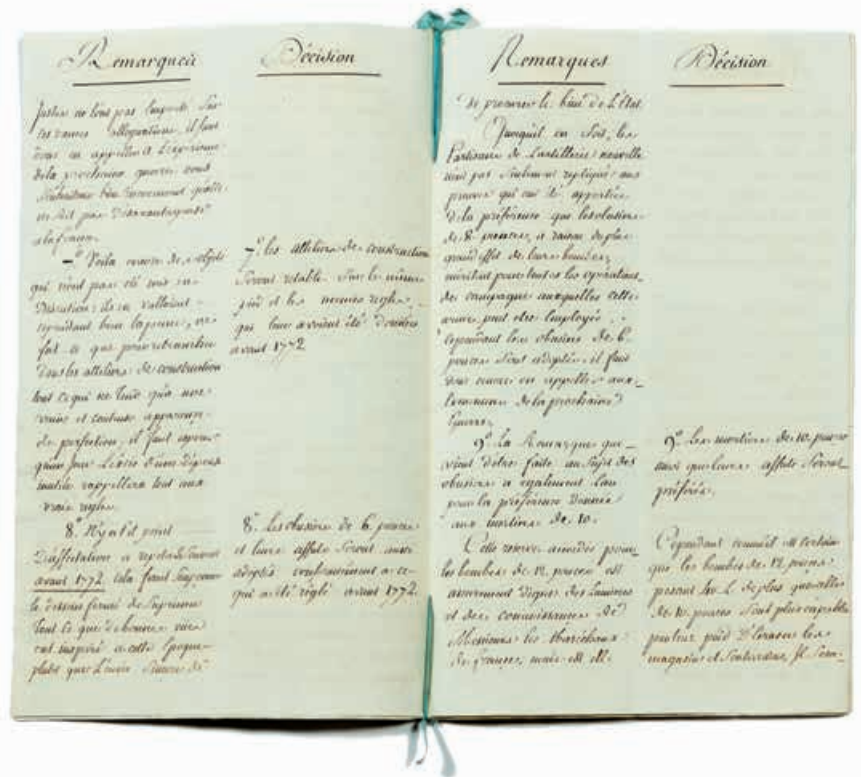 Remarques
justes ne l'ont pas emporté sur
les vaines allégations, il faut
donc en appeller à l'expérience
de la prochaine guerre
à la france.
Voila encore des objets
qui n'ont pas été mis en
discution; ils en valloient
cependant bien la peine,
fut ce que pour retrancher
dans les atteliers de construction
tout ce qui ne tend qu'à une
vaine et couteuse apparence
de perfection, il faut
inutile rappellera tout aux
vraie regles.
8.° N'y a t'il point
d'affectation a repeter souvent
avant 1772.
le dessein formé de suprimer
tout ce que de bonnes vues
ont inspiré a cette Epoque
plutôt que l'envie sincere de
Décision
7.° les atteliers de construction
Seront retablis Sur le même
pied et les mêmes regles
qui leur avoient été données
avant 1772
8.° Les obusiers de 6. pouces
et leurs affuts Seront aussi
adoptés conformement a ce
qui a été réglé avant 1772.
Remarques
de procurer le bien de L'Etat
Quoiqu'il en soit, les
Partisans de L'artillerie nouvelle
n'ont pas seulement repliqué aux
preuves qui ont été apportées
de la préférence que les obusiers
de 8. pouces, a raison du plus
grand effet de leurs bombes,
méritent pour toutes les opérations
de campagne auxquelles cette
arme peut etre employée.
cependant les obusiers de 6.
pouces Sont adoptés, il faut
donc encore en appeller aux
de la prochaine
Guerre.
9.° La Remarque qui
vient d'etre faite au Sujet des
obusiers a également lieu
pour la préférence donnée
aux mortiers de 10.
Cette réserve accordée pour
les bombes de 12. pouces est
assurement digne des lumieres
et des connoissances de
Messieurs les Maréchaux
de france, mais est elle
Décision
9.° Les mortiers de 10. pouces
ainsi que leurs affuts Seront
préférés.
Cependant comme il est certain
que les bombes de 12. pouces
pesant de plus que celles
de 10. pouces Sont plus capables
par leur poid d'Ecraser les
magasins et Souterrains, Il Sera